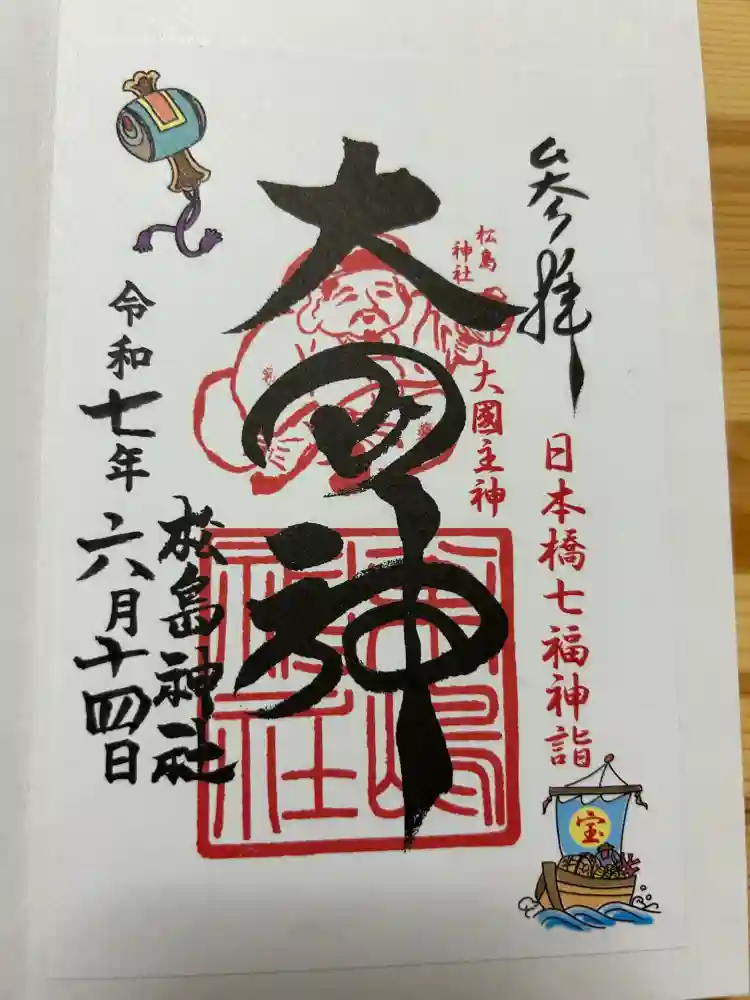 参拝
日本橋七福神詣
宝
松島
神社
大國主神
大国神
松島神社
令和七年六月十四日